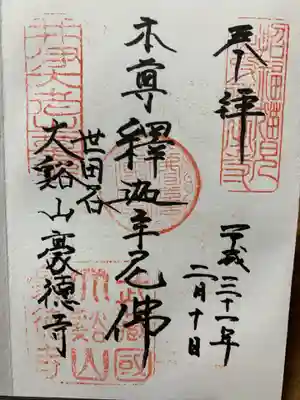 奉拝
平成三十一年
二月十日
本尊釋迦牟尼佛
世田谷
大谿山豪徳寺
招福猫児